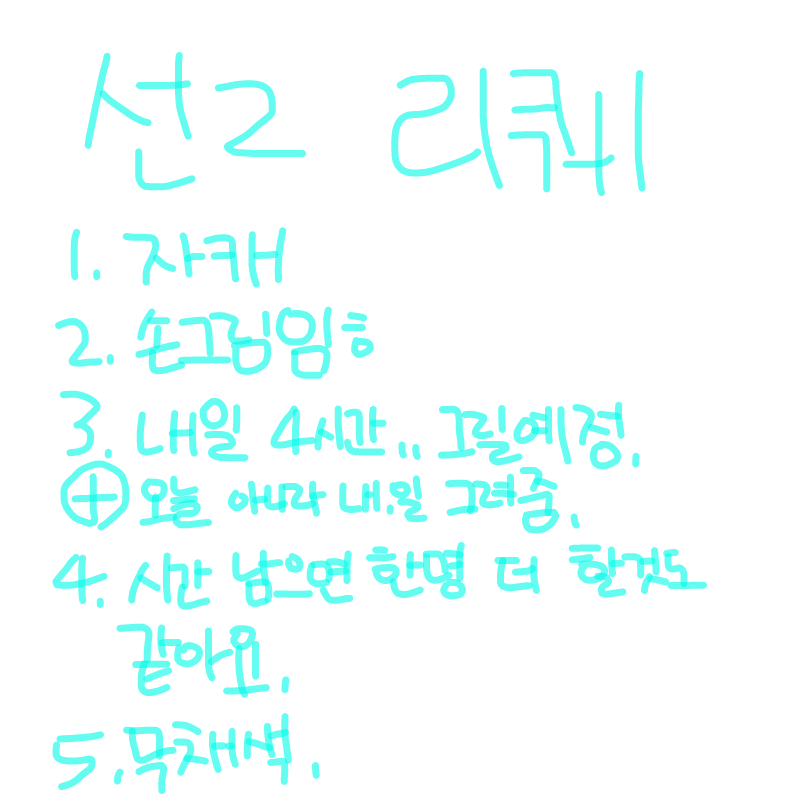 선2 리퀘
1. 자캐
2. 손그림임ㅎ
3. 내일 4시간.. 그릴예정.
⊕ 오늘 아니라 내일 그려줌.
4. 시간 남으면 한명 더 할것도
같아요.
5. 무채색.